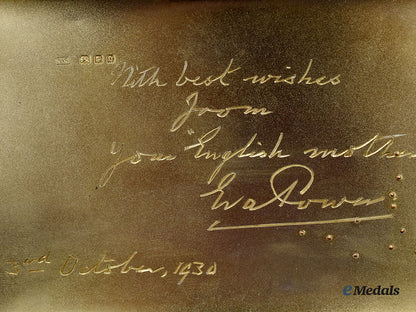 With best wishes
from
Your "English mother
Eva Power
2nd October, 1930
eMedals